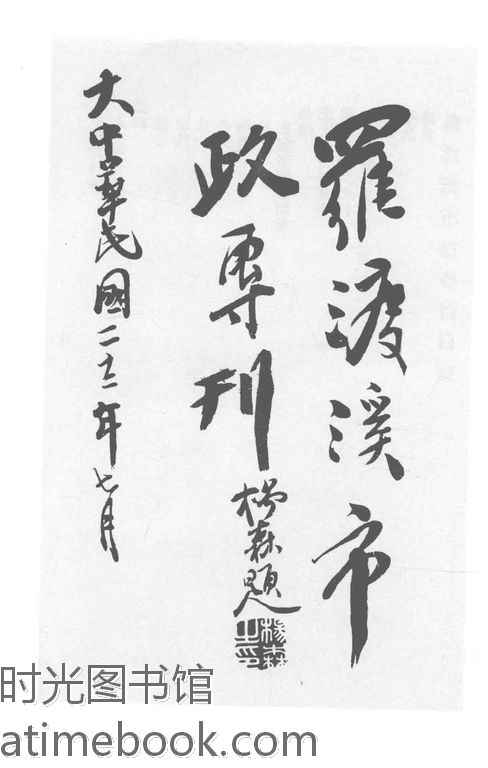 羅渡溪市
政專刊
楊森題
楊森之印
大中華民國二十二年七月
时光图书馆
atimebook.com